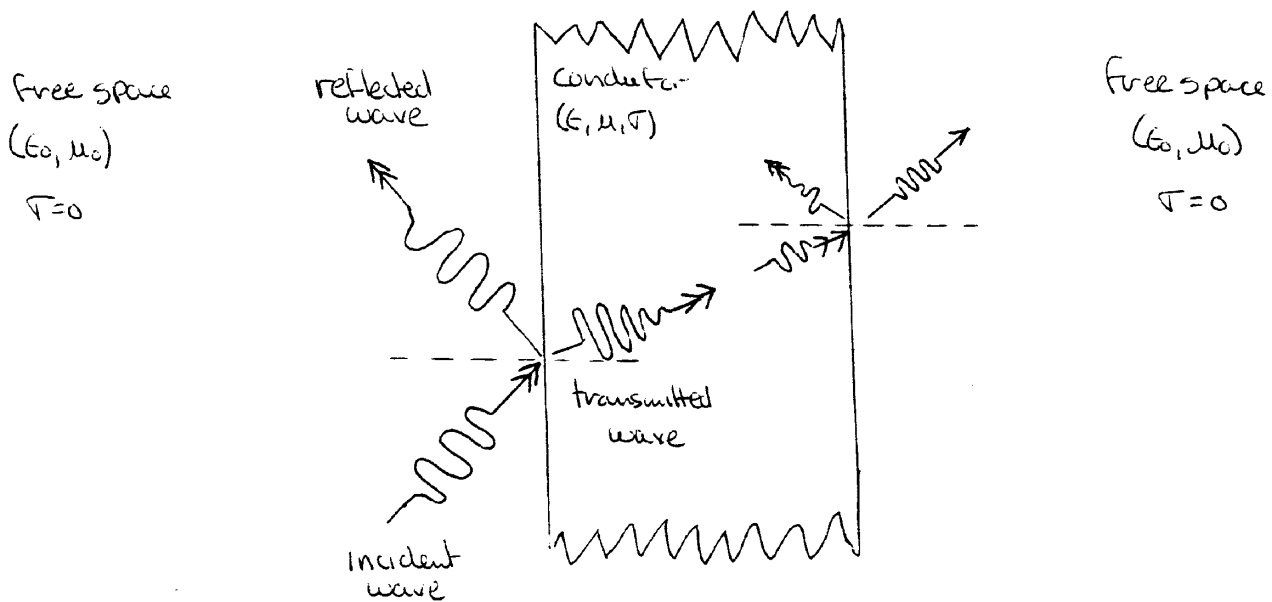 free space
(ε₀, μ₀)
σ=0
reflected
wave
conductor
(ε, μ, σ)
free space
(ε₀, μ₀)
σ=0
transmitted
wave
Incident
wave